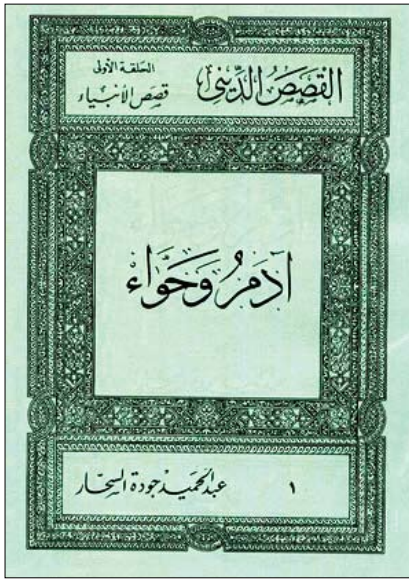 القصص الدينى
الحلقة الأولى
قصص الأنبياء
آدَمُ وَحَوَّاء
عبد الحميد جودة السحار
١